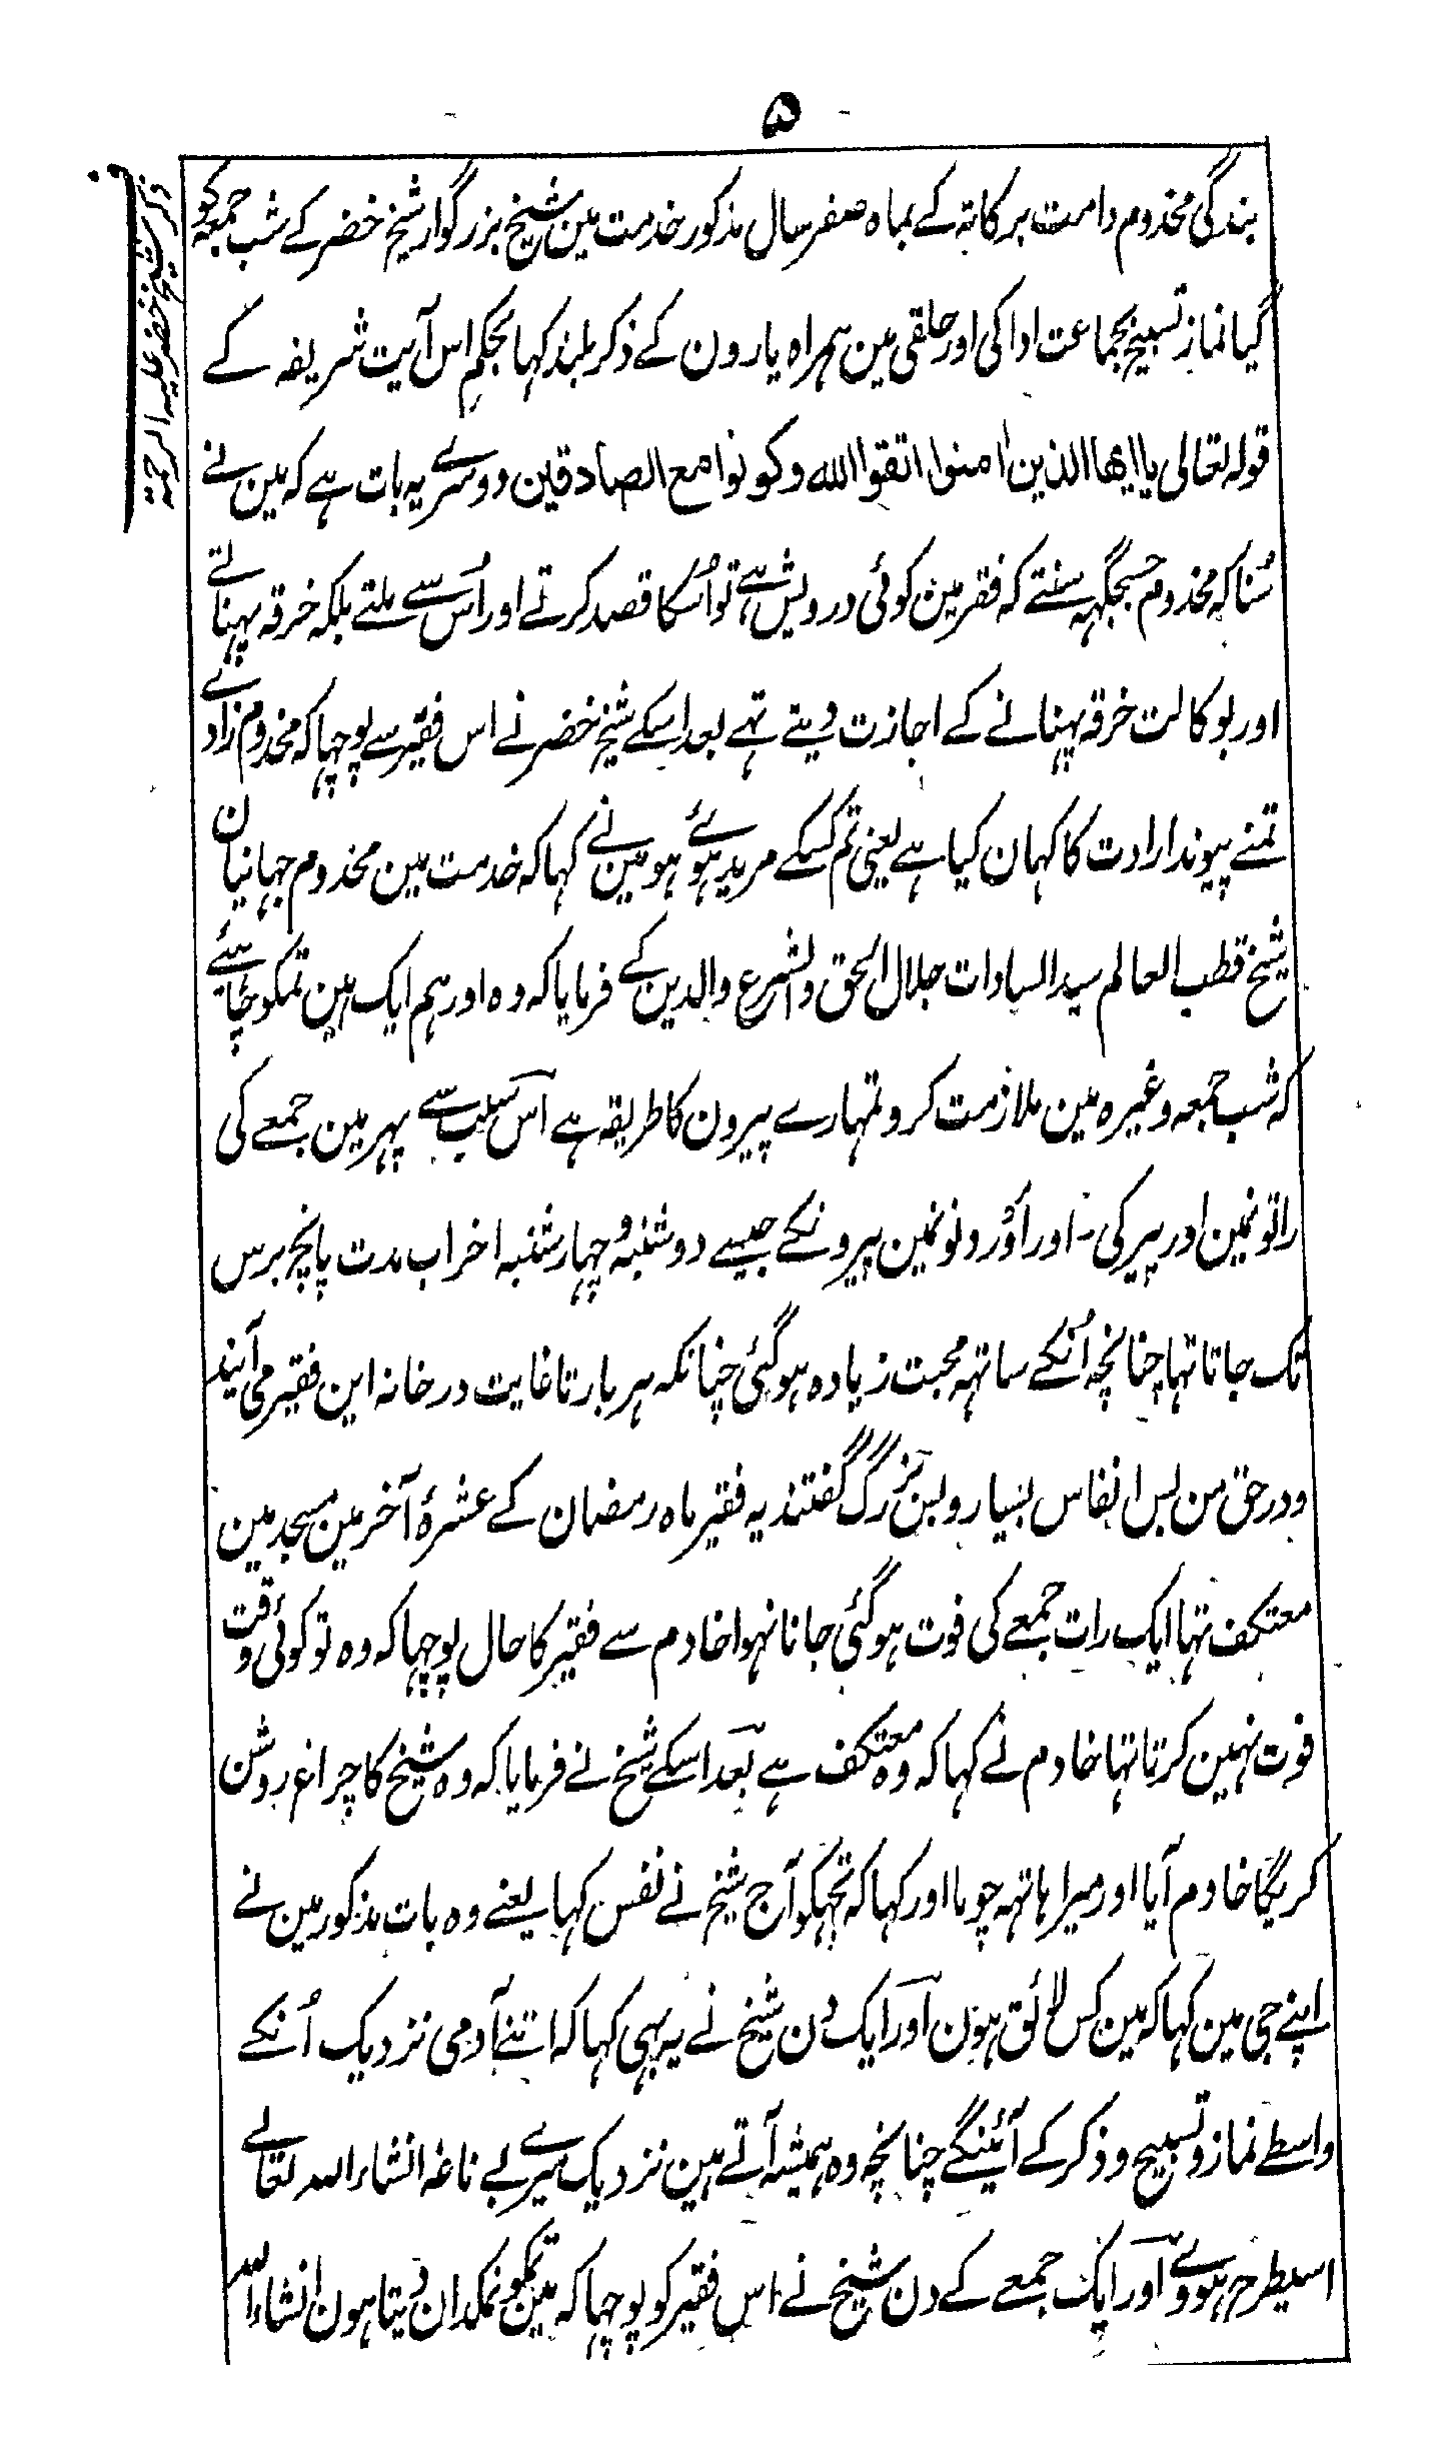 ۵
بندگی مخدوم دامت برکاتہ کے بماہ صفر سال مذکور خدمت مین شیخ بزرگوار شیخ خضر کے شب جمعہ کو
گیا نماز تسبیح بجماعت ادا کی اور حلقی مین ہمراہ یارون کے ذکر بلند کہا بحکم اس آیت شریفہ کے
قولہ تعالی یا ایھا الذین اٰمنوا اتقوا اللہ وکونوا مع الصادقین دوسرے یہ بات ہے کہ مین نے
سُنا کہ مخدوم جسجگہہ سنتے کہ فقر مین کوئی درویش ہے تو اُسکا قصد کرتے اور اُس سے ملتے بلکہ خرقہ پہناتے
اور بوکالت خرقہ پہنانے کے اجازت دیتے تہے بعد اسکے شیخ خضر نے اس فقیر سے پوچہا کہ مخدوم زادے
تمنے پیوند ارادت کا کہان کیا ہے یعنی تم کسکے مرید ہوئے ہو مین نے کہا کہ خدمت مین مخدوم جہانیان
شیخ قطب العالم سید السادات جلال الحق والشرع والدین کے فرمایا کہ وہ اور ہم ایک ہین تمکو چاہئے
کہ شب جمعہ وغیرہ مین ملازمت کرو تمہارے پیرون کا طریقہ ہے اس سبب سے پہر مین جمعے کی
راتونمین اور پیر کی اور اَور دنونمین پیرونکے جیسے دوشنبہ و چہارشنبہ اخراب مدت پانچ برس
تک جاتا تہا چنانچہ اُنکے ساتہہ محبت زیادہ ہوگئی چنانکہ ہر بار تا غایت در خانہ این فقیر می آیند
و در حق من بس انفاس بسیار و بس بزرگ گفتند یہ فقیر ماہ رمضان کے عشرۂ آخر مین مسجد مین
معتکف تہا ایک رات جمعے کی فوت ہوگئی جانا نہوا خادم سے فقیر کا حال پوچہا کہ وہ تو کوئی وقت
فوت نہین کرتا تہا خادم نے کہا کہ وہ معتکف ہے بعد اسکے شیخ نے فرمایا کہ وہ شیخ کا چراغ روشن
کریگا خادم آیا اور میرا ہاتہہ چوما اور کہا کہ تجہکو آج شیخ نے نفس کہا یعنے وہ بات مذکور مین نے
اپنے جی مین کہا کہ مین کس لائق ہون اور ایک دن شیخ نے یہ بہی کہا کہ اتنے آدمی نزدیک اُنکے
واسطے نماز و تسبیح و ذکر کے آئینگے چنانچہ وہ ہمیشہ آتے ہین نزدیک میرے بے ناغہ انشاء اللہ تعالے
اسیطرح ہووے اور ایک جمعے کے دن شیخ نے اس فقیر کو پوچہا کہ مین تمکو نمکدان دیتا ہون انشاء اللہ
ذکر شیخ خضر علیہ الرحمۃ